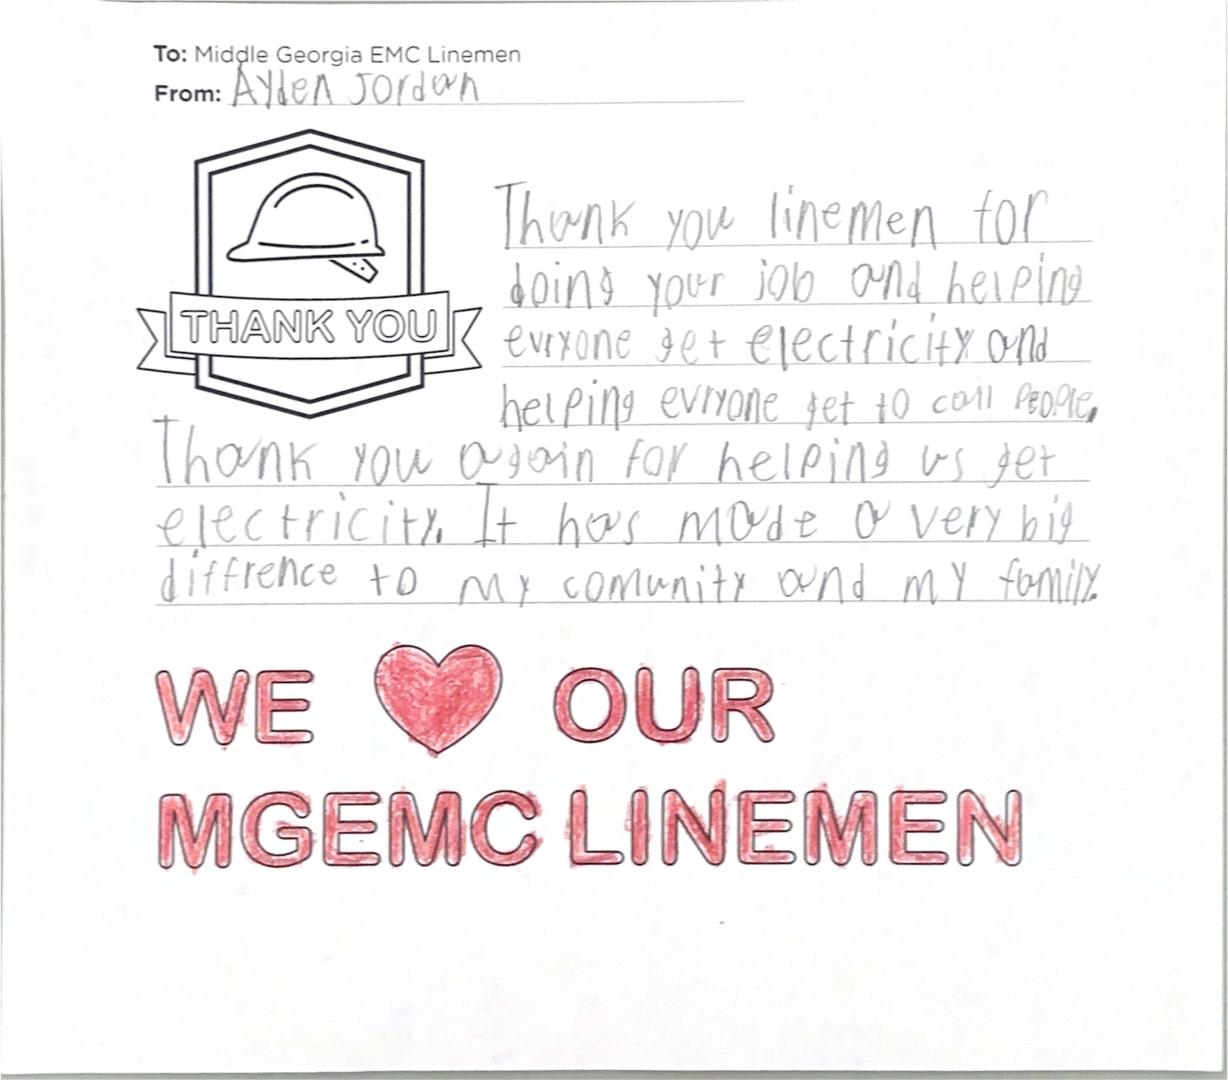 To: Middle Georgia EMC Linemen
From: Ayden Jordan
THANK YOU
Thank you linemen for
doing your job and helping
evryone get electricity and
helping evryone get to call people.
Thank you again for helping us get
electricity. It has made a very big
diffrence to my comunity and my family.
WE OUR
MGEMC LINEMEN